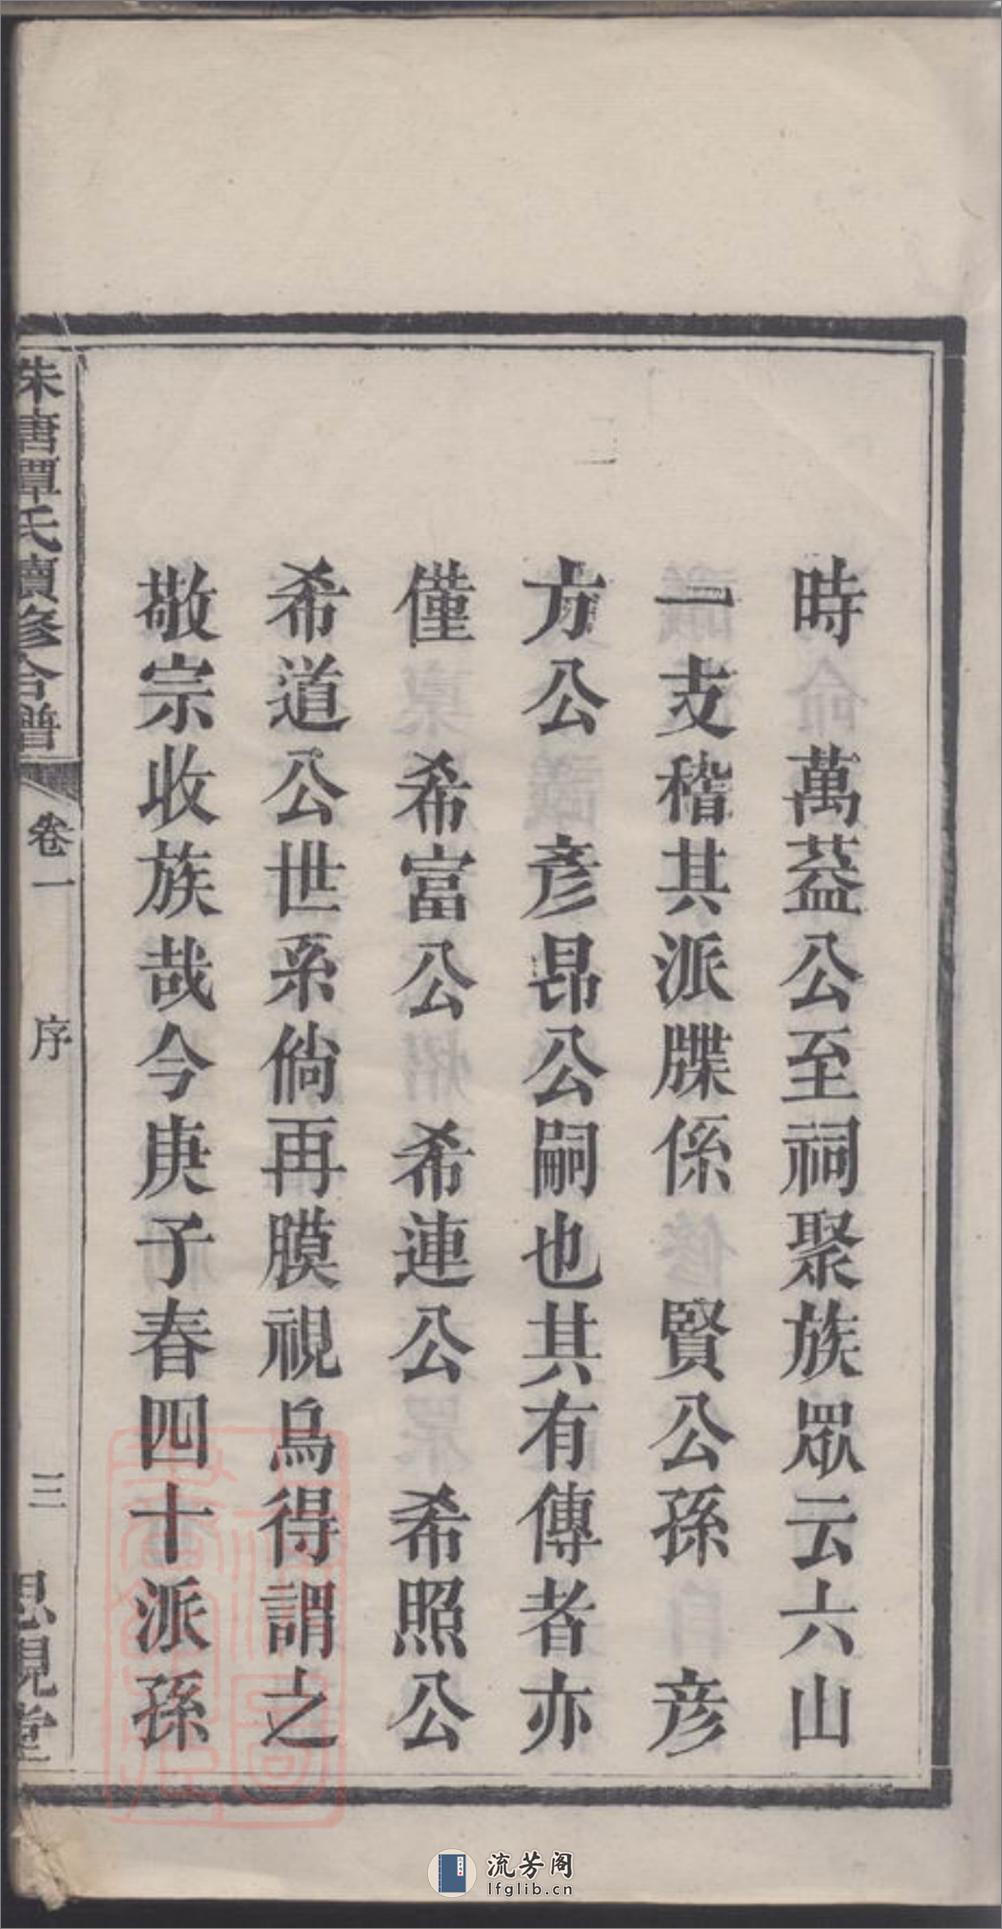 時　萬益公至祠聚族眾云六山
一支稽其派牒係　賢公孫　彥
方公　彥昂公嗣也其有傳者亦
僅　希富公　希連公　希照公
希道公世系倘再膜視烏得謂之
敬宗收族哉今庚子春四十派孫
朱唐譚氏續修合譜
卷一
序
三
思覲堂
流芳阁
lfglib.cn